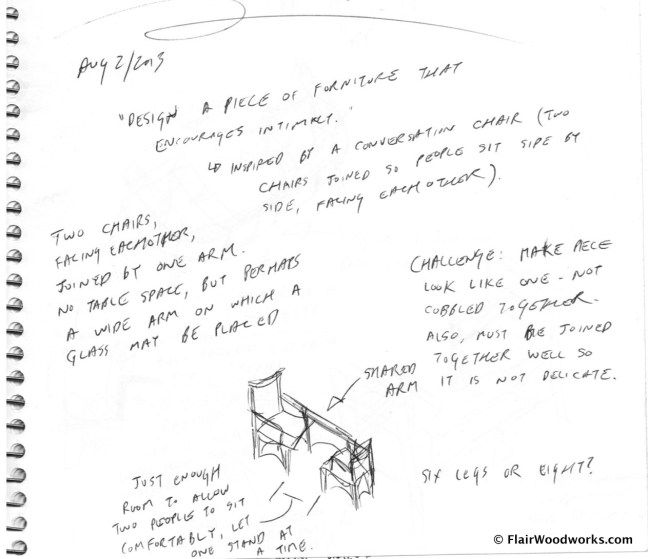 AUG 2/2013
"DESIGN A PIECE OF FORNITURE THAT
ENCOURAGES INTIMACY."
↳ INSPIRED BY A CONVERSATION CHAIR (TWO
CHAIRS JOINED SO PEOPLE SIT SIDE BY
SIDE, FACING EACHOTHER).
TWO CHAIRS,
FACING EACHOTHER,
JOINED BY ONE ARM.
NO TABLE SPACE, BUT PERHAPS
A WIDE ARM ON WHICH A
GLASS MAY BE PLACED
CHALLENGE: MAKE PIECE
LOOK LIKE ONE - NOT
COBBLED TOGETHER.
ALSO, MUST BE JOINED
TOGETHER WELL SO
IT IS NOT DELICATE.
SHARED
ARM
JUST ENOUGH
ROOM TO ALLOW
TWO PEOPLE TO SIT
COMFORTABLY, LET
ONE STAND AT
A TIME.
SIX LEGS OR EIGHT?
© FlairWoodworks.com